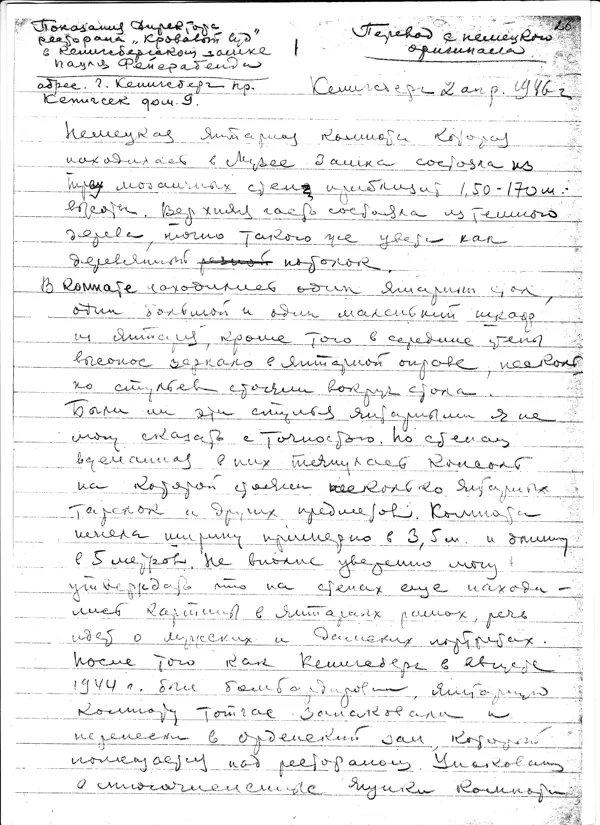 Показания Директора
ресторана „Кровавый суд"
в Кенигсбергском замке
Пауля Фейерабенда
адрес. г. Кенигсберг пр.
дом. 9.
Перевод с немецкого
оригинала
26
Кенигсберг 2 апр. 1946 г
Немецкая янтарная комната которая
находилась в Музее Замка состояла из
трех мозаичных стен приблизит 1,50-170 м.
высоты. Верхняя часть состояла из темного
дерева, точно такого же цвета как
деревянный резной потолок.
В комнате находились один янтарный стол,
один большой и один маленький шкафа
из янтаря, кроме того в середине стены
высокое зеркало в янтарной оправе, несколь
ко стульев стояли вокруг стола.
Были ли эти стулья янтарными я не
могу сказать с точностью. По стенам
вделанная в них тянулась консоль
на которой стояли несколько янтарных
тарелок и других предметов. Комната
имела ширину примерно в 3,5 м. и длину
в 5 метров. Не вполне уверенно могу
утверждать что на стенах еще находи-
лись картины в янтарных рамах, речь
идет о мужских и дамских портретах.
После того как Кенигсберг в августе
1944 г. был бомбардирован, янтарную
комнату тотчас запаковали и
перенесли в орденский зал, который
помещается над рестораном. Упакована
в многочисленные ящики комната